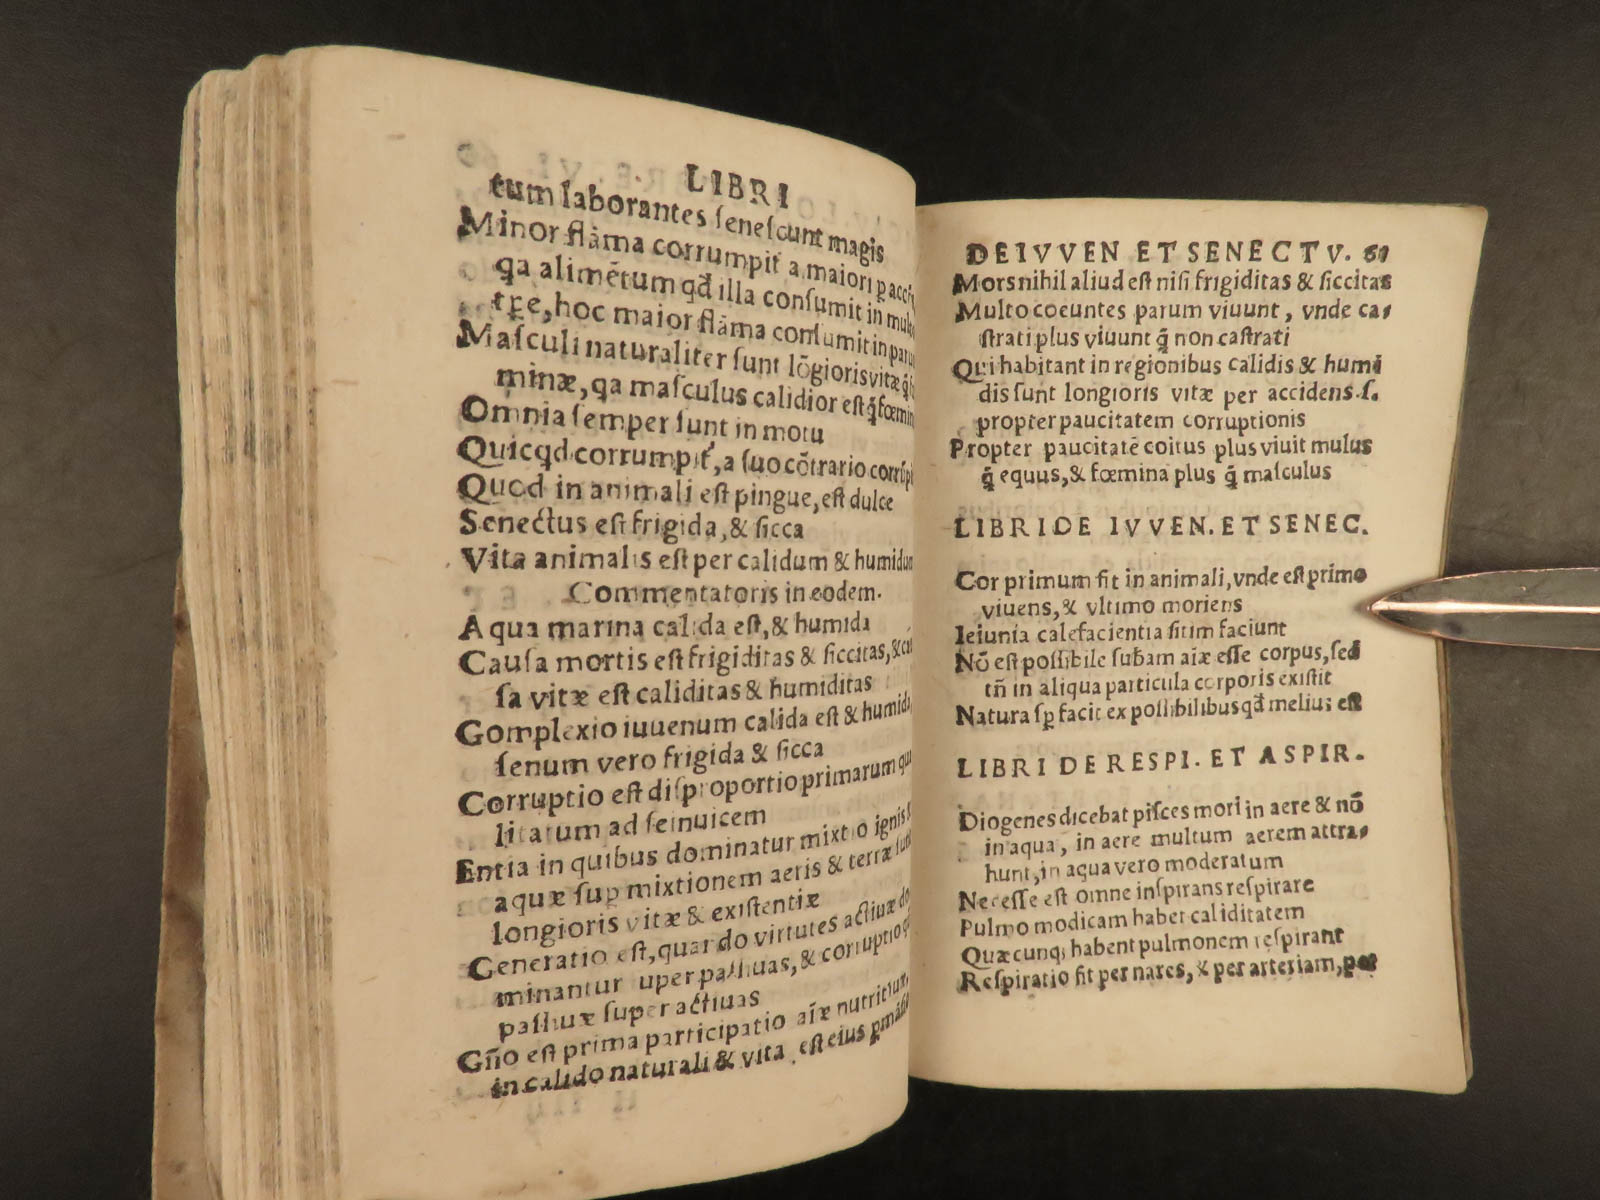 LIBRI
tum laborantes ſeneſcunt magis
Minor flãma corrumpit̃ a maiori p acci
qa alimẽtum qđ illa conſumit in mul
tẽpe, hoc maior flãma conſumit in paru
Maſculi naturaliter ſunt lõgioris vitæ q̃
minæ, qa maſculus calidior eſt q̃ fœmin
Omnia ſemper ſunt in motu
Quicqd corrumpit̃, a ſuo cõtrario corrũpi
Quod in animali eſt pingue, eſt dulce
Senectus eſt frigida, & ſicca
Vita animalis eſt per calidum & humidum
Commentatoris in eodem.
Aqua marina calida eſt, & humida
Cauſa mortis eſt frigiditas & ſiccitas, & cau
ſa vitæ eſt caliditas & humiditas
Complexio iuuenum calida eſt & humida
ſenum vero frigida & ſicca
Corruptio eſt diſproportio primarum qua
litatum ad ſeinuicem
Entia in quibus dominatur mixtio ignis &
aquæ ſup mixtionem aeris & terræ ſunt
longioris vitæ & exiſtentiæ
Generatio eſt, quando virtutes actiuæ do
minantur ſuper paſſiuas, & corruptio
paſſiuæ ſuper actiuas
GñO eſt prima participatio aĩæ nutritiuæ
in calido naturali & vita eſt eius
DE IVVEN ET SENECTV. 61
Mors nihil aliud eſt niſi frigiditas & ſiccitas
Multo coeuntes parum viuunt, vnde ca-
ſtrati plus viuunt q̃ non caſtrati
Qui habitant in regionibus calidis & humi
dis ſunt longioris vitæ per accidens .ſ.
propter paucitatem corruptionis
Propter paucitatẽ coitus plus viuit mulus
q̃ equus, & fœmina plus q̃ maſculus
LIBRI DE IVVEN. ET SENEC.
Cor primum fit in animali, vnde eſt primo
viuens, & vltimo moriens
Ieiunia calefacientia ſitim faciunt
Nõ eſt poſſibile ſubam aĩæ eſſe corpus, ſed
tñ in aliqua particula corporis exiſtit
Natura ſp facit ex poſſibilibus qđ melius eſt
LIBRI DE RESPI. ET ASPIR.
Diogenes dicebat piſces mori in aere & nõ
in aqua, in aere multum aerem attra-
hunt, in aqua vero moderatum
Neceſſe eſt omne inſpirans reſpirare
Pulmo modicam habet caliditatem
Quæcunq; habent pulmonem reſpirant
Reſpiratio fit per nares, & per arteriam, per